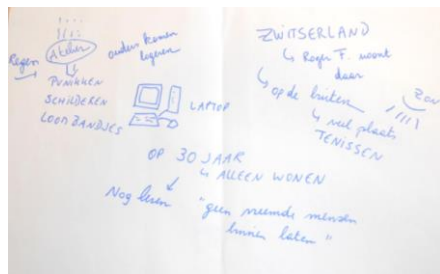 Atelier
ouders komen
logeren
Regen
PUNIKKEN
SCHILDEREN
LOOMBANDJES
LAPTOP
ZWITSERLAND
Roger F. woont
daar
op de buiten
veel plaats
TENISSEN
ZON
OP 30 JAAR
ALLEEN WONEN
Nog leren "geen vreemde mensen
binnen laten"